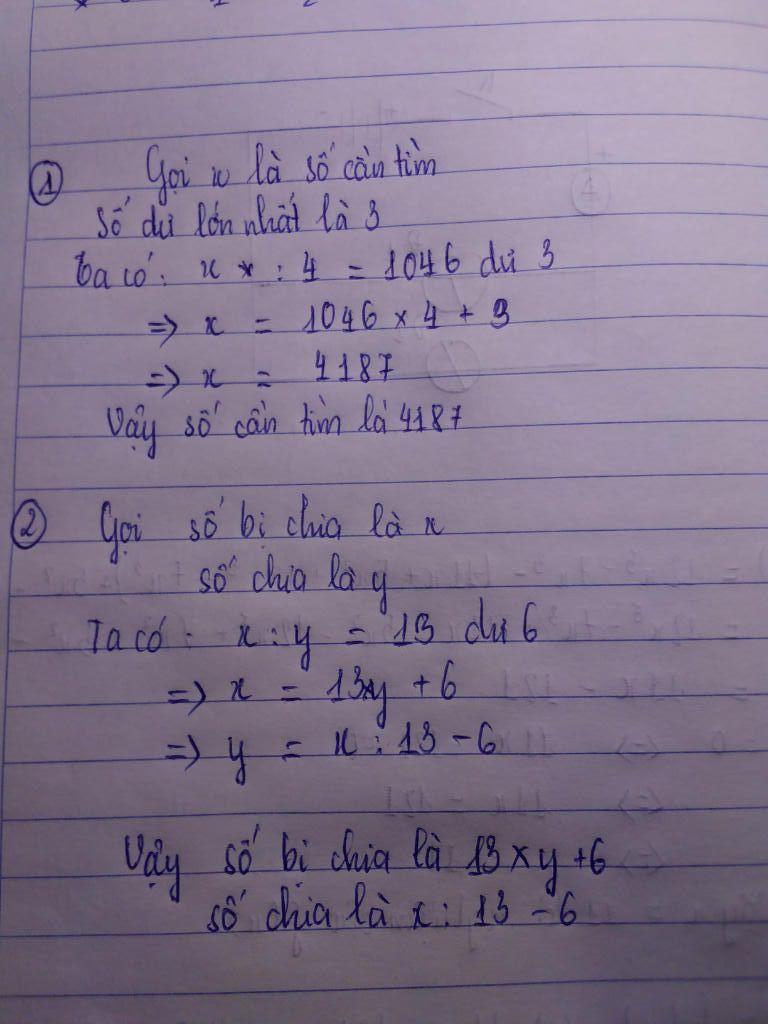 ① Gọi x là số cần tìm
Số dư lớn nhất là 3
Ta có: x : 4 = 1046 dư 3
=> x = 1046 x 4 + 3
=> x = 4187
Vậy số cần tìm là 4187
② Gọi số bị chia là x
số chia là y
Ta có: x : y = 13 dư 6
=> x = 13xy + 6
=> y = x : 13 - 6
Vậy số bị chia là 13 x y + 6
số chia là x : 13 - 6